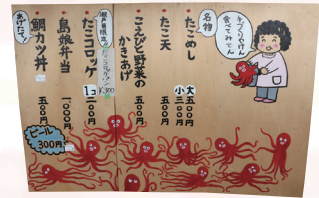 手づくりやけん
食べてみてん
名物
たこめし
大五〇〇円
小三〇〇円
たこ天
五〇〇円
こえびと野菜の
かきあげ
五〇〇円
たこコロッケ
1コ二〇〇円
島根弁当
一〇〇〇円
あげたて!
鯛カツ丼
五〇〇円
ビール
300円